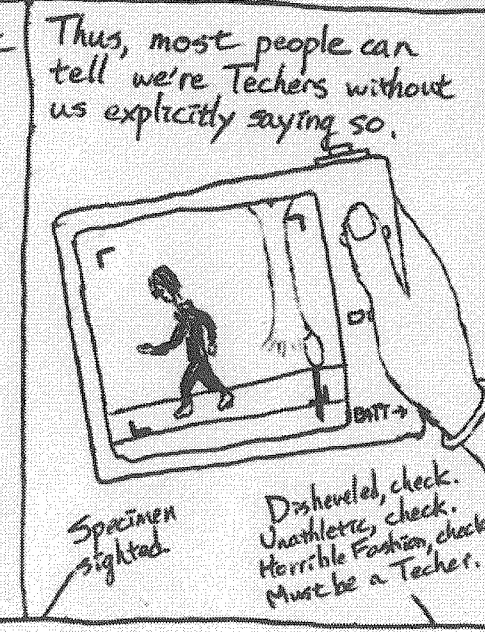 Thus, most people can
tell we're Techers without
us explicitly saying so.
BATT→
Specimen
sighted.
Disheveled, check.
Unathletic, check.
Horrible Fashion, check
Must be a Techer.